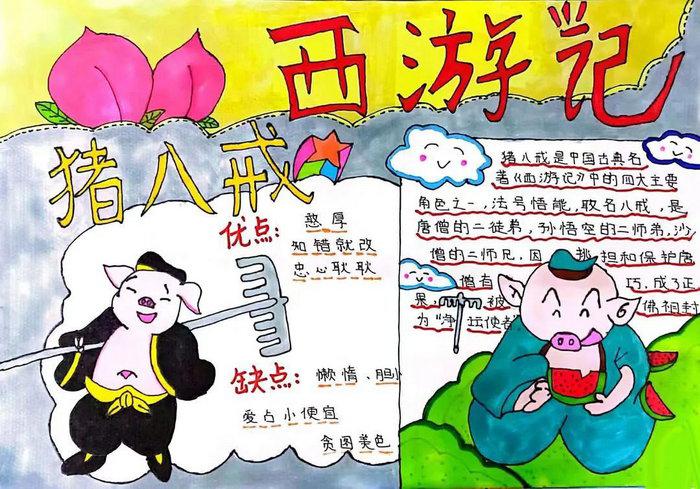 西游记
猪八戒
优点:
憨厚
知错就改
忠心耿耿
缺点:
懒惰、胆小
爱占小便宜
贪图美色
猪八戒是中国古典名
著《西游记》中的四大主要
角色之一,法号悟能,取名八戒,是
唐僧的二徒弟,孙悟空的二师弟,沙
僧的二师兄,因 挑担和保护唐
僧有 巧,成了正
果, 被 佛祖封
为"净坛使者